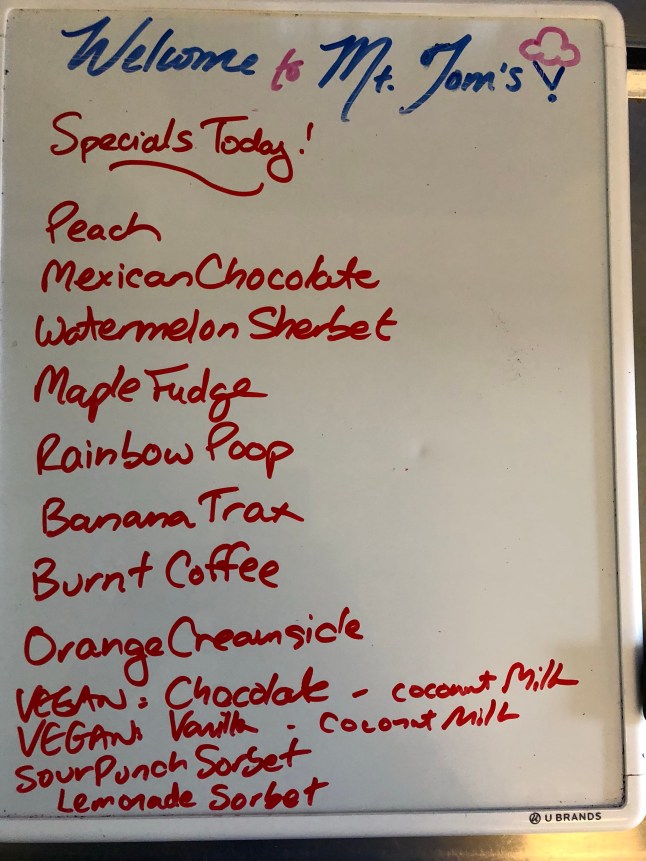 Welcome to Mt. Tom's!
Specials Today!
Peach
Mexican Chocolate
Watermelon Sherbet
Maple Fudge
Rainbow Poop
Banana Trax
Burnt Coffee
Orange Creamsicle
VEGAN: Chocolate - coconut Milk
VEGAN: Vanilla - coconut Milk
Sour Punch Sorbet
Lemonade Sorbet
U BRANDS